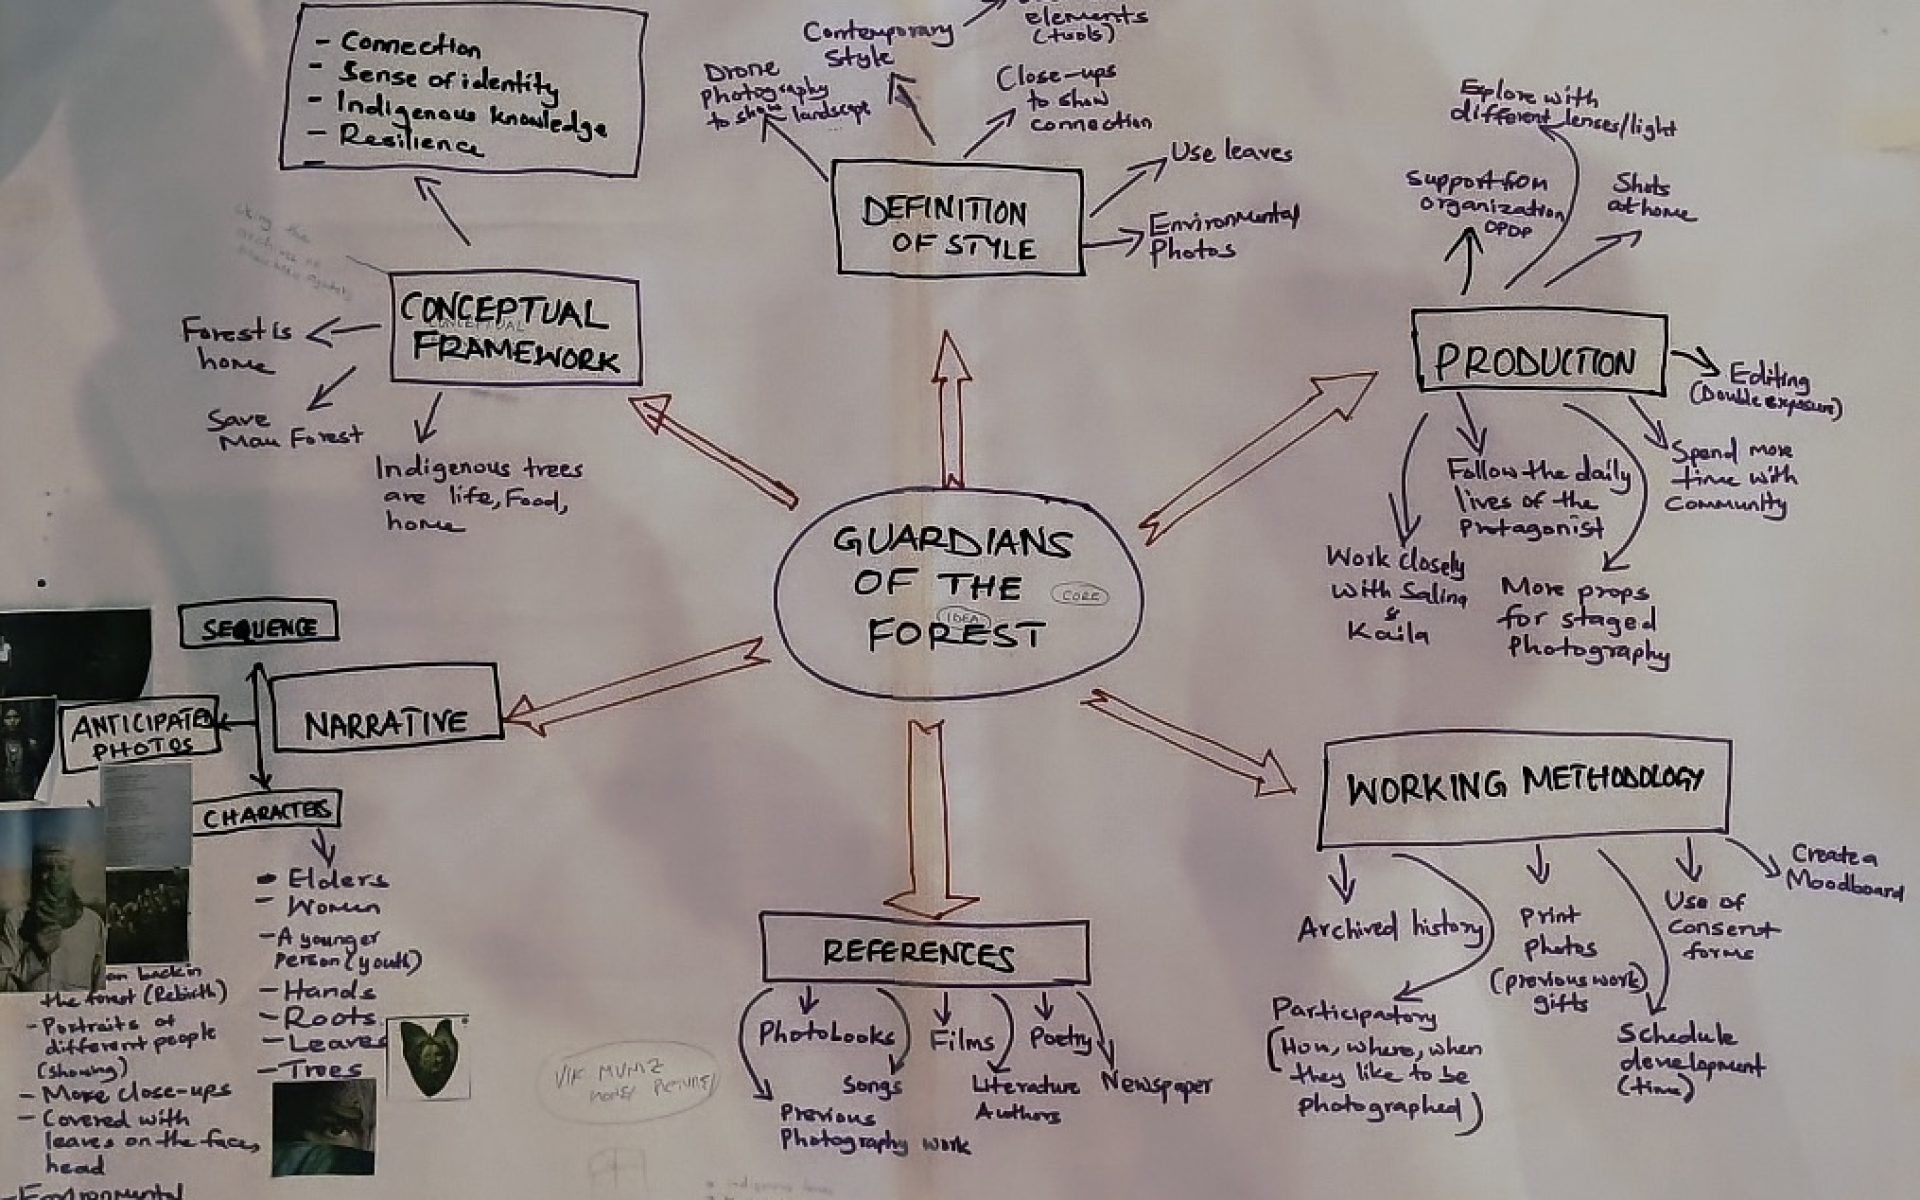 - Connection
- Sense of identity
- Indigenous knowledge
- Resilience
-
CONCEPTUAL
FRAMEWORK
CONCEPTUAL
Forest is
home
Save
Mau Forest
Indigenous trees
are life, Food,
home
Contemporary
Style
elements
(tools)
Drone
Photography
to show landscape
...
Close-ups
to show
connection
Use leaves
Environmental
Photos
DEFINITION
OF STYLE
Explore with
different lenses/light
Support from
organization
OPDP
Shots
at home
PRODUCTION
Editing
(Double exposure)
Spend more
time with
Community
Follow the daily
lives of the
Protagonist
Work closely
with Salina
&
Kaila
More props
for staged
Photography
GUARDIANS
OF THE
FOREST
CORE
IDEA
SEQUENCE
NARRATIVE
ANTICIPATED
PHOTOS
CHARACTERS
- Elders
- Women
- A younger
Person (youth)
- Hands
- Roots
- Leaves
- Trees
back in
the forest (Rebirth)
- Portraits of
different people
(showing)
- More close-ups
- Covered with
leaves on the face,
head
- Environmental
VIK MUNIZ
REFERENCES
Photobooks
Songs
Previous
Photography work
Films
Literature
Authors
Poetry
Newspaper
WORKING METHODOLOGY
Archived history
Participatory
(How, where, when
they like to be
photographed)
Print
photos
(previous work)
gifts
Schedule
development
(time)
Use of
consent
forms
Create a
Moodboard